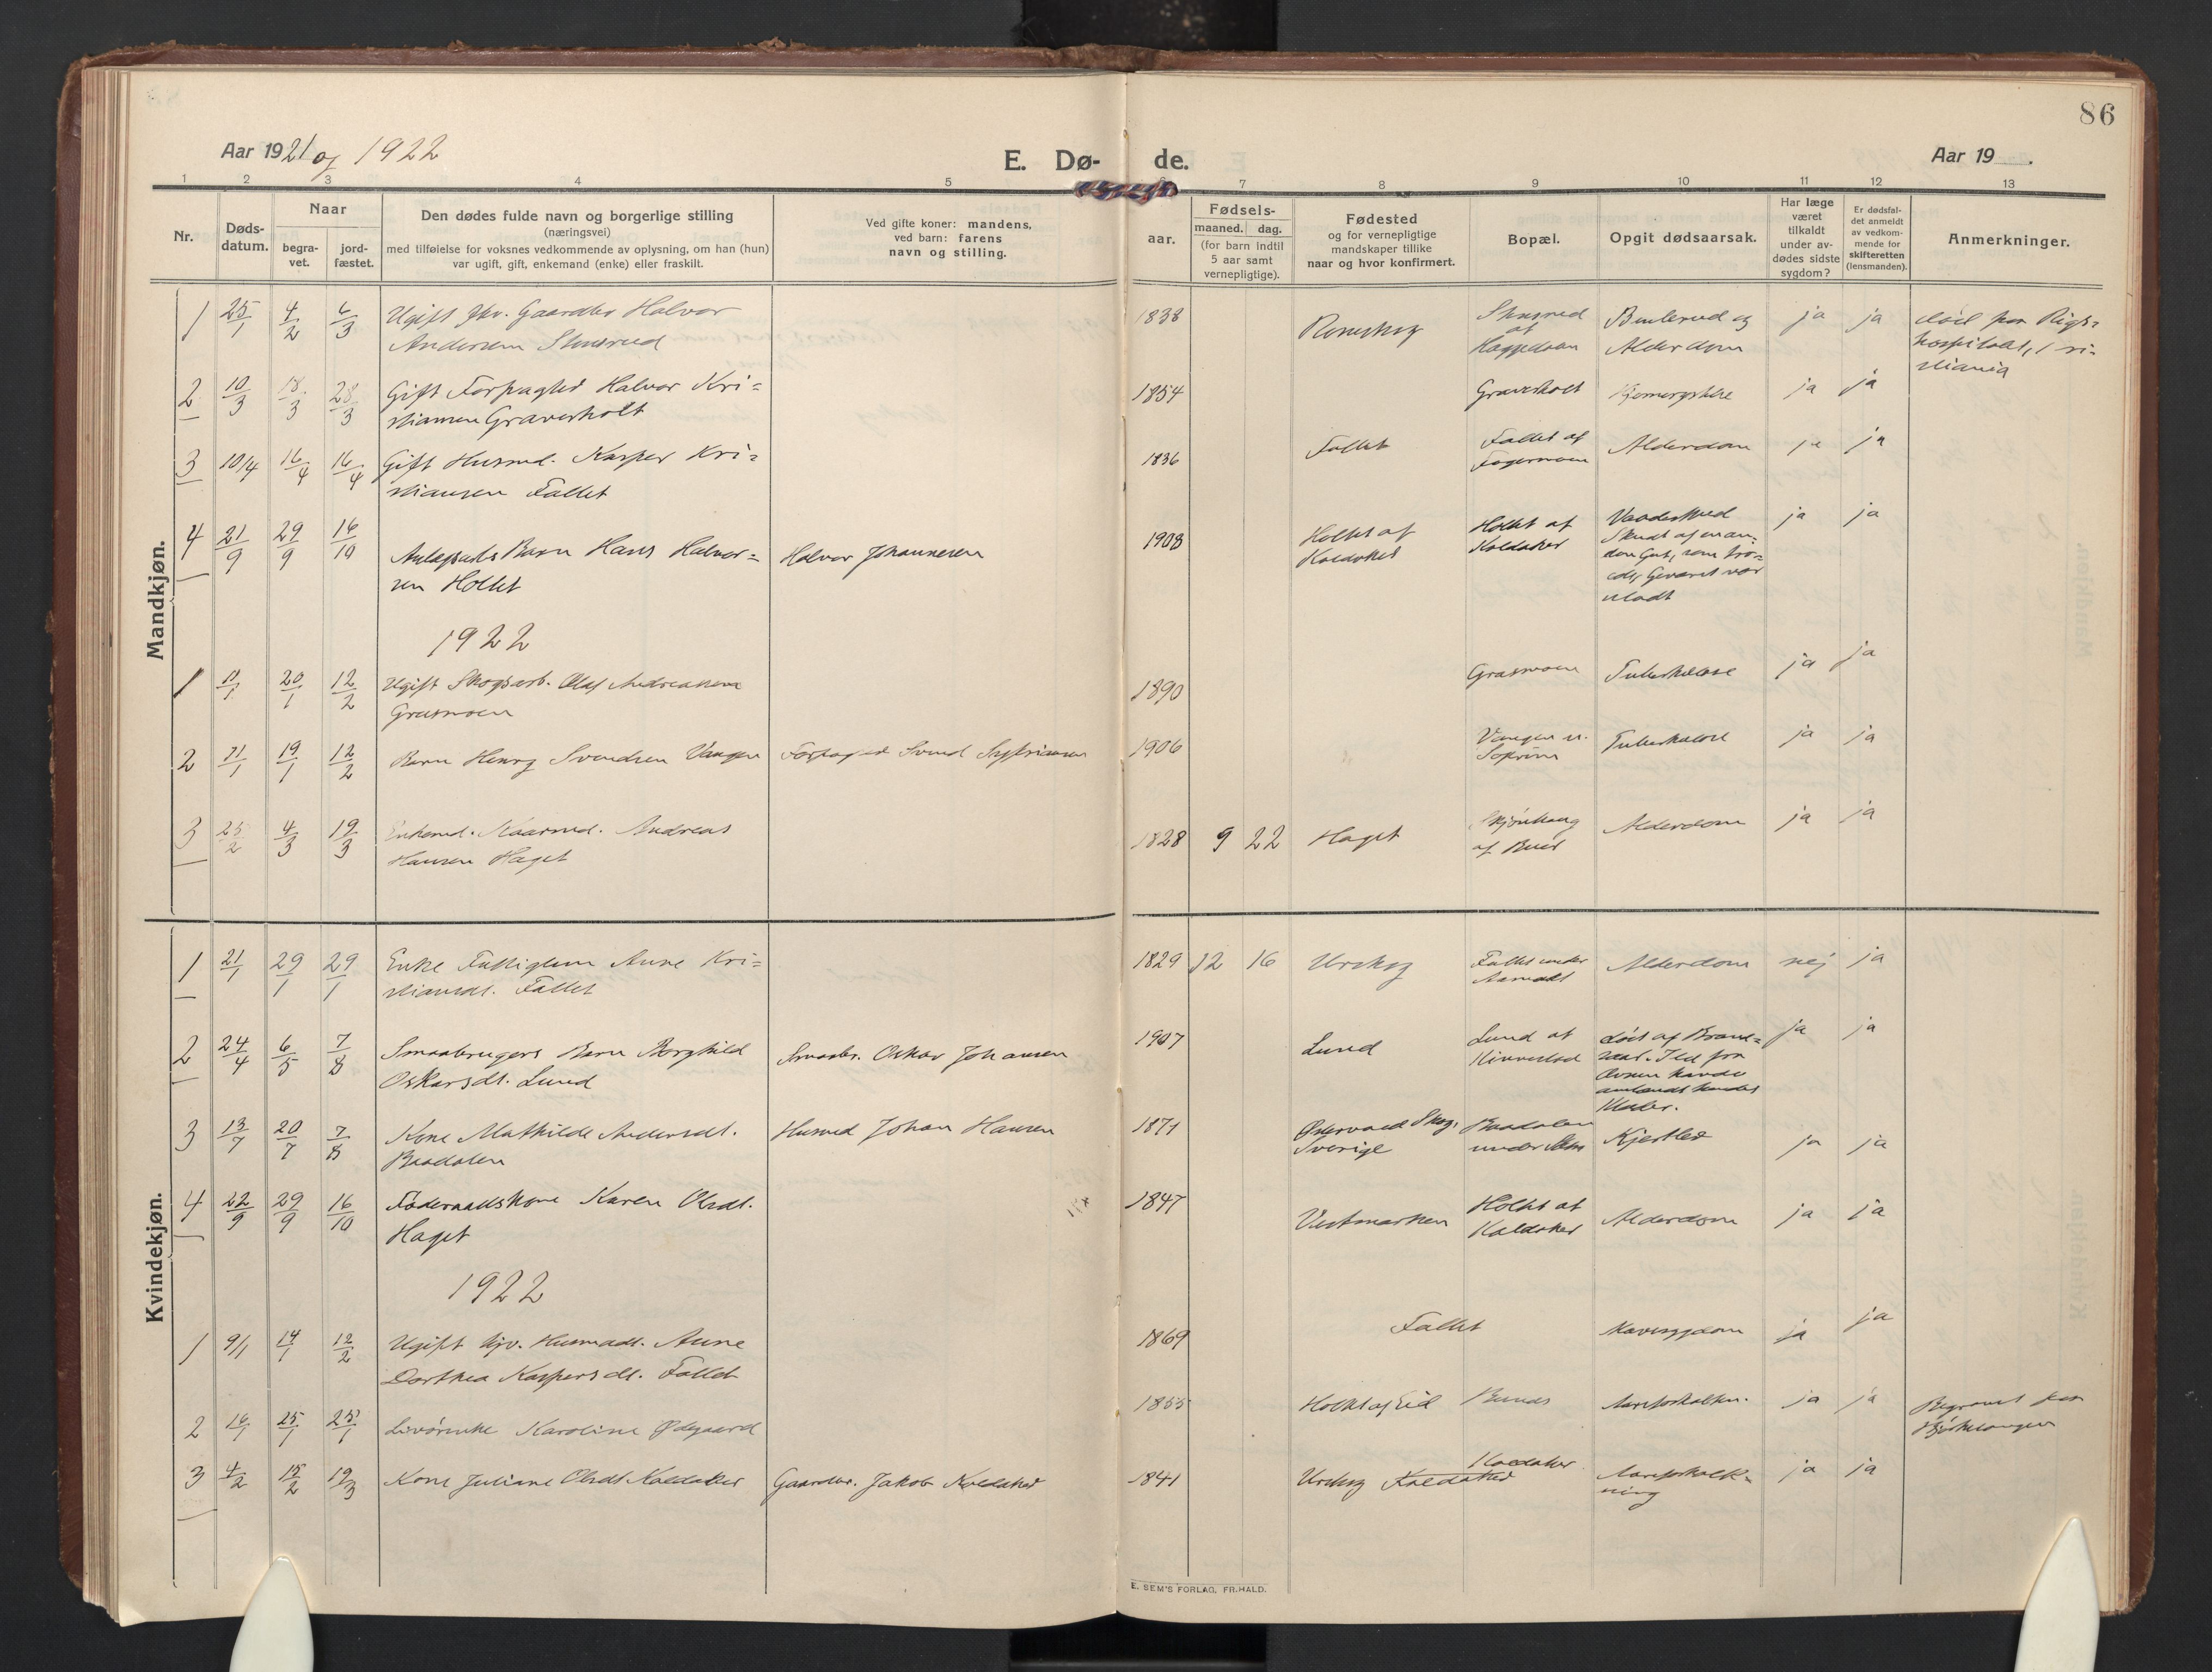 86
Aar 1921 og 1922
E. Dø-
de.
Aar 19 .
1 2 3 4 5 6 7 8 9 10 11 12 13
Nr.
Døds-
datum.
Naar
begra-
vet.
jord-
fæstet.
Den dødes fulde navn og borgerlige stilling
(næringsvei)
med tilføielse for voksnes vedkommende av oplysning, om han (hun)
var ugift, gift, enkemand (enke) eller fraskilt.
Ved gifte koner: mandens,
ved barn: farens
navn og stilling.
aar.
Fødsels-
maaned. dag.
(for barn indtil
5 aar samt
vernepligtige).
Fødested
og for vernepligtige
mandskaper tillike
naar og hvor konfirmert.
Bopæl.
Opgit dødsaarsak.
Har læge
været
tilkaldt
under av-
dødes sidste
sygdom?
Er dødsfal-
det anmeldt
av vedkom-
mende for
skifteretten
(lensmanden).
Anmerkninger.
Mandkjøn.
1 25/1 4/2 6/3 Ugift fhv. Gaardbr Halvor
Andersen
1838
Alderdom
ja ja
død paa Rigs-
hospitalet, Kri-
stiania
2 10/3 18/3 28/3 Gift Forpagter Halvor Kri-
stiansen Graverholt
1854 Graverholt ja ja
3 10/4 16/4 16/4 Gift Husmd. Kasper Kri-
stiansen Fallet
1836 Fallet Fallet af
Alderdom ja ja
4 21/9 29/9 16/10
Barn Hans Halvor-
sen Hollet
Halvor Johannesen
1908 Hollet af
Koldaker
Hollet af
Koldaker
Vaadeskud
Skudt af en an-
den Gut, som tro-
ede, Geværet var
uladt
ja ja
1922
1 11/1 20/1 12/2 Ugift Skogsarb. Olaf Andreassen
Grasmoen
1890 Grasmoen Tuberkulose ja ja
2 11/1 19/1 12/2 Barn Henry Svendsen Vangen
Forpagter Svend
1906 Vangen u.
Tuberkulose ja ja
3 25/2 4/3 19/3 Enkemd. Kaarmd. Andreas
Hansen Haget
1828 9 22 Haget
Alderdom ja ja
Kvindekjøn.
1 21/1 29/1 29/1 Enke Fattiglem Anne Kri-
stiansdt. Fallet
1829 12 16 Urskog Fallet under
Alderdom nej ja
2 24/4 6/5 7/8 Smaabrugers Barn Borghild
Oskarsdt. Lund
Smaabr. Oskar Johansen
1907 Lund Lund af
Død af Brand-
saar. Ild fra
Ovnen havde
antændt hendes
Klæder.
ja ja
3 13/7 20/7 7/8 Kone Mathilde Andersdt.
Baadalen
Husmd Johan Hansen
1871
Sverige
Baadalen
under
ja ja
4 22/9 29/9 16/10 Føderaadskone Karen Olsdt.
Haget
1847 Vestmarken Hollet af
Koldaker
Alderdom ja ja
1922
1 9/1 14/1 12/2 Ugift hjv. Husmdt. Anne
Dorthea Kaspersdt. Fallet
1869 Fallet Mavesygdom ja ja
2 16/1 25/1 25/1 Karoline Ødegaard
1855 Hollet af Eid
Aareforkalkn. ja ja
Begravet paa
Bjørkelangen
3 4/2 15/2 19/3 Kone Juliane Olsdt Koldaker
Gaardbr. Jakob Koldaker
1841 Urskog Koldaker
Koldaker
Aareforkalk-
ning
ja ja
E. SEM'S FORLAG, FR.HALD.